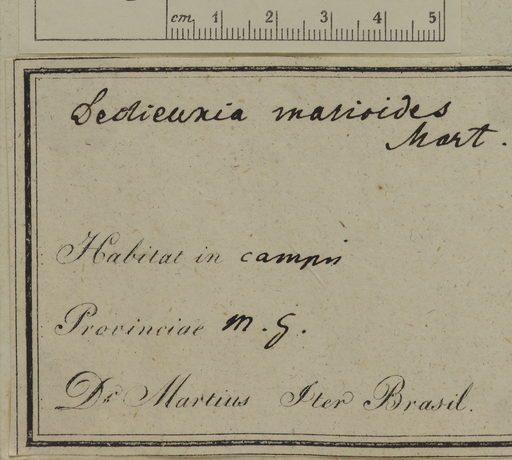 cm 1 2 3 4 5
marioides
Mart.
Habitat in campis
Provinciae M. G.
Dr Martius Iter Brasil.